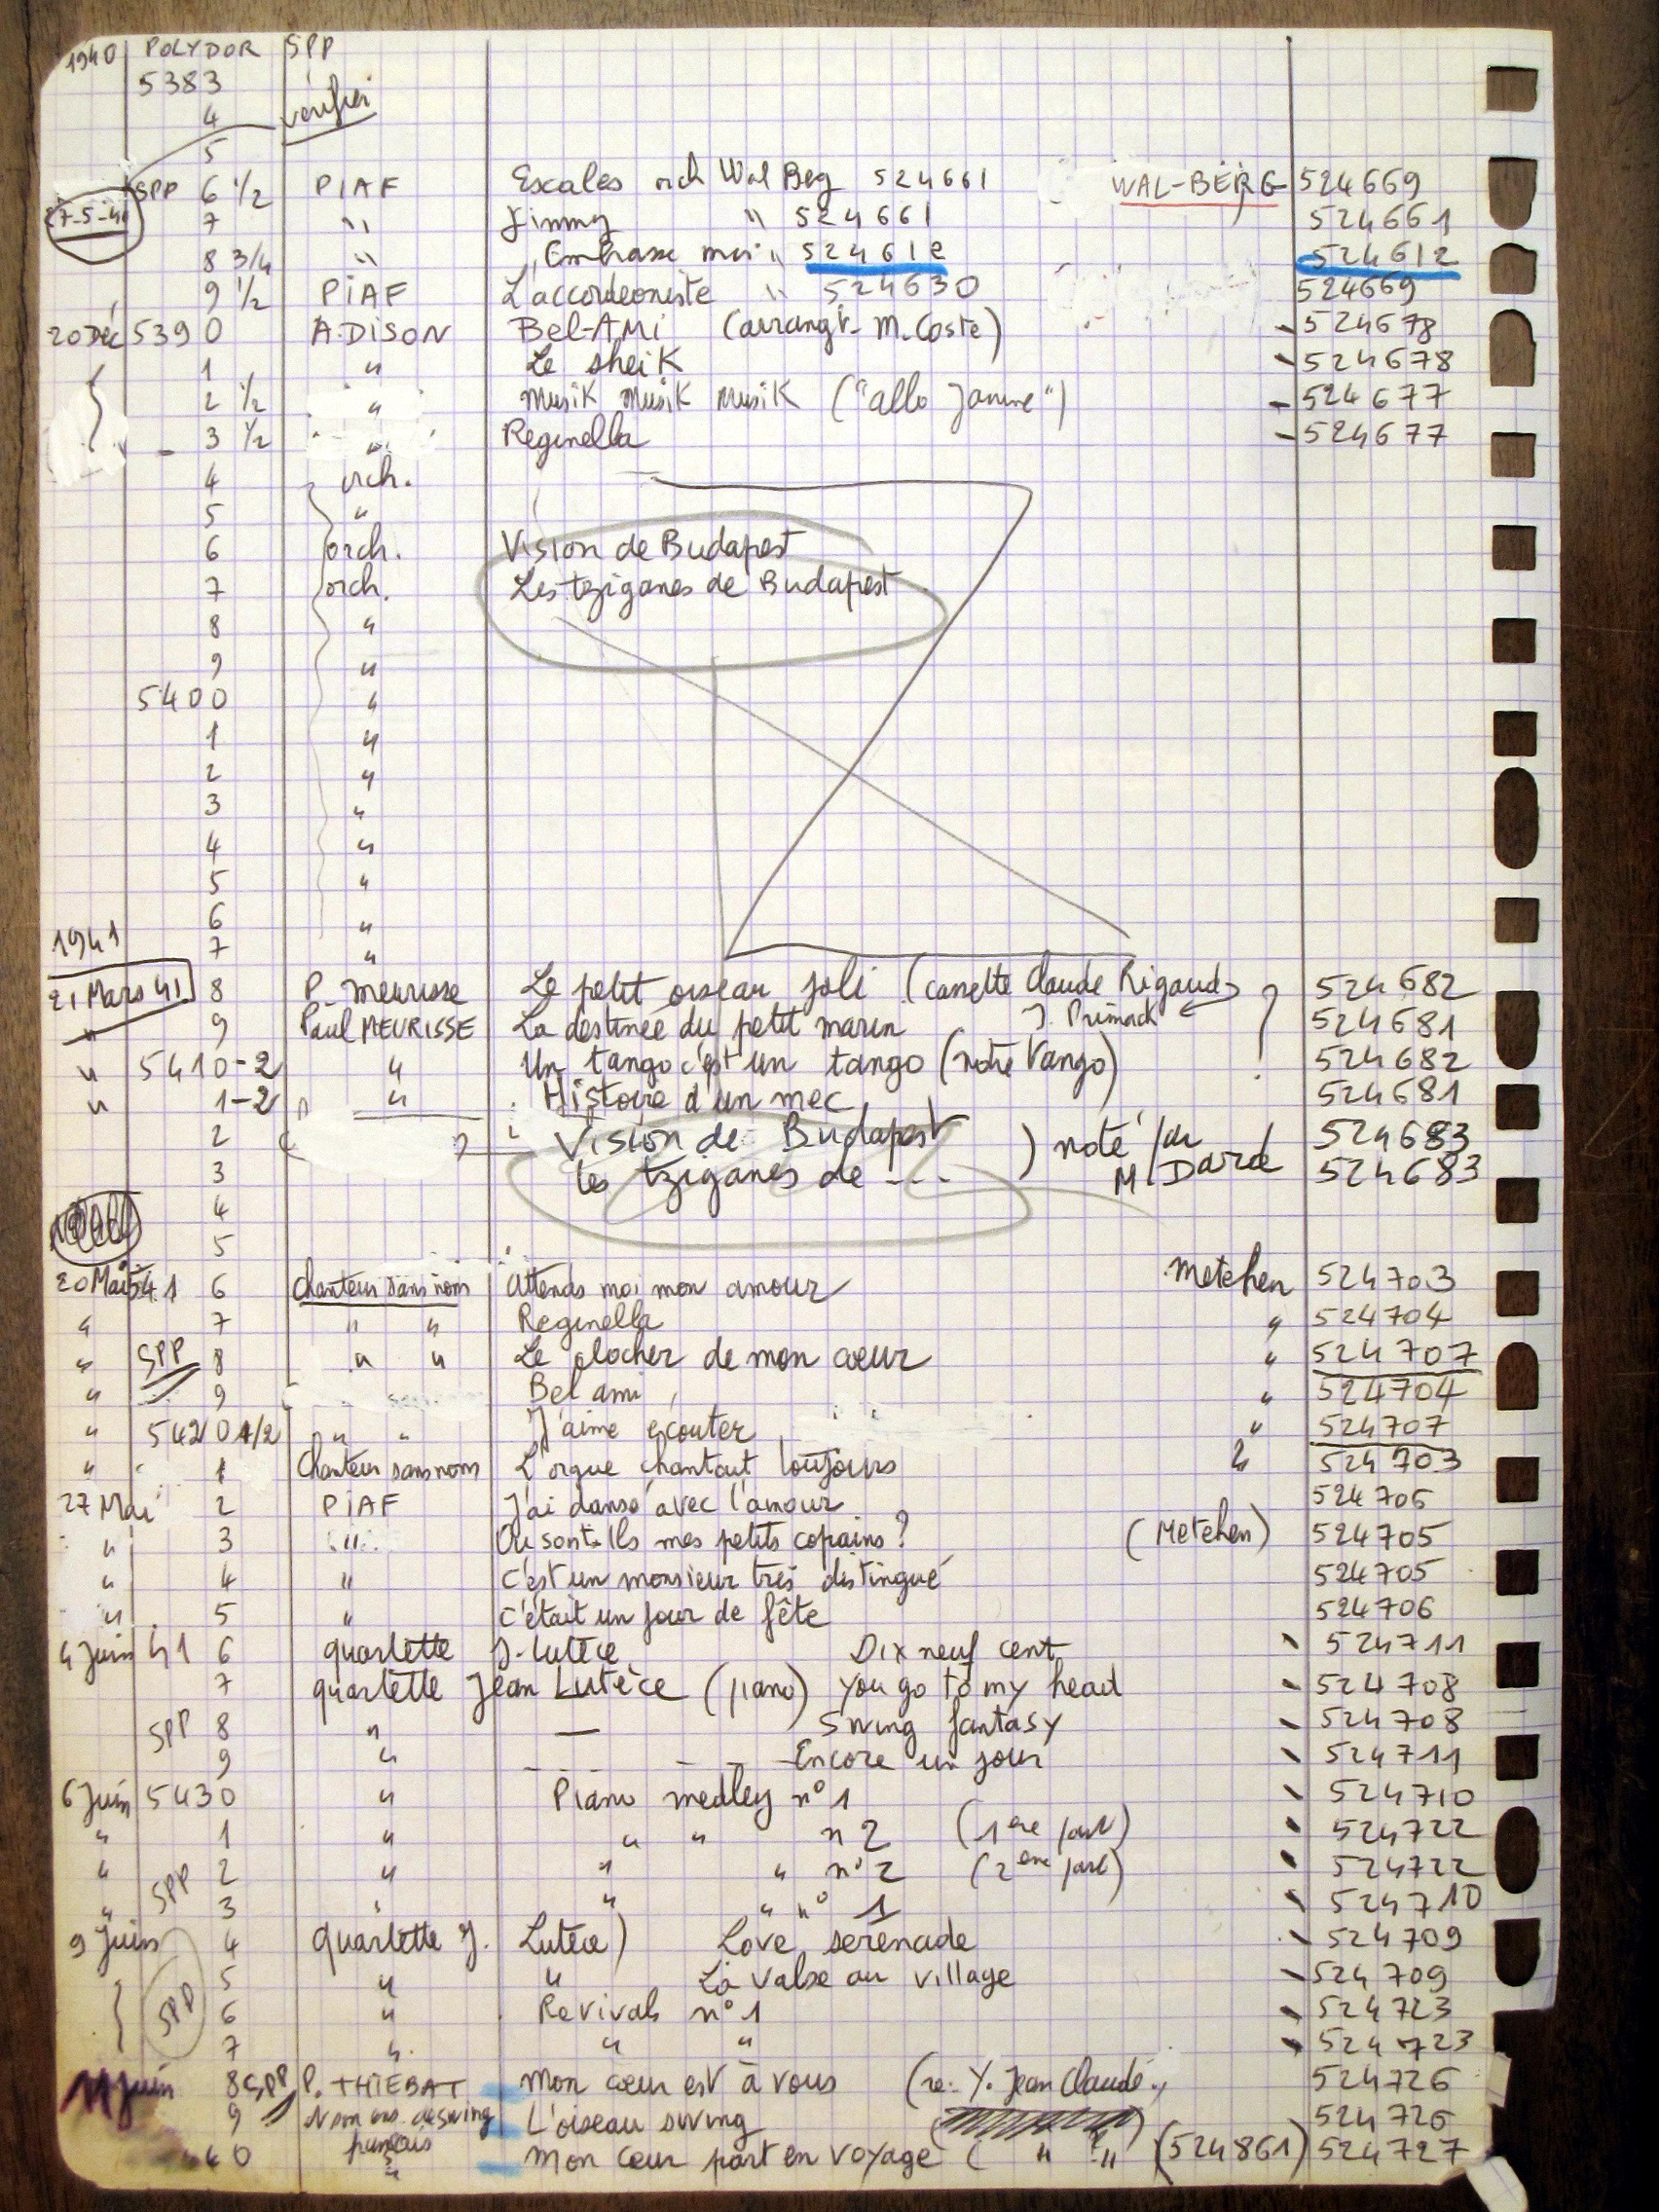 1940 POLYDOR SPP
5383
4 vérifier
5
SPP 6 1/2 PIAF Escales orch Wal Beg 524661 WAL-BERG 524669
27-5-40 7 " Jimmy " 524661 524661
8 3/4 " Embrasse moi " 524612 524612
9 1/2 PIAF L'accordeoniste " 524630 524669
20 Déc 5390 A.DISON Bel-AMi (arrangt- M. Coste) 524678
1 " Le sheik 524678
2 1/2 " Musik Musik Musik ("allo Janine") 524677
3 1/2 " Reginella 524677
4 orch.
5 "
6 orch. Vision de Budapest
7 orch. Les tziganes de Budapest
8 "
9 "
5400 "
1 "
2 "
3 "
4 "
5 "
6 "
1941 7 "
21 Mars 41 8 P. Meurisse Le petit oiseau joli (cassette Claude Rigaud ? 524682
" 9 Paul MEURISSE La destinée du petit marin J. Primack 524681
" 5410-2 " Un tango c'est un tango (noté Vango) 524682
" 1-2 " Histoire d'un mec 524681
2 Vision de Budapest ) noté par 524683
3 Les tziganes de --- M. Dardé 524683
4
5
20 Mai 541 6 Chanteur sans nom Attends moi mon amour Metehen 524703
" 7 " " Reginella " 524704
" SPP 8 " " Le clocher de mon cœur " 524707
" 9 Bel ami " 524704
" 5420 1/2 " " J'aime écouter " 524707
" 1 Chanteur sans nom L'orgue chantait toujours " 524703
27 Mai 2 PIAF J'ai dansé avec l'amour 524706
" 3 " Où sont-ils mes petits copains ? (Metehen) 524705
" 4 " C'est un monsieur très distingué 524705
" 5 " C'était un jour de fête 524706
4 Juin 41 6 quartette J. Lutèce Dix neuf cent 524711
7 quartette Jean Lutèce (piano) You go to my head 524708
SPP 8 " — Swing fantasy 524708
9 " - - - Encore un jour 524711
6 Juin 5430 " Piano medley n° 1 524710
" 1 " " " n 2 (1ère part) 524722
" SPP 2 " " " n° 2 (2ème part) 524722
" 3 " " " n° 1 524710
9 Juin 4 quartette J. Lutèce) Love serenade 524709
5 " " La valse au village 524709
SPP 6 " Revivals n° 1 524723
7 " " " 524723
11 Juin 8 SPP P. THIEBAT Mon cœur est à vous (re. Y. Jean Claude. 524726
9 swing L'oiseau swing 524726
40 français " Mon cœur part en voyage ( " " (524861) 524727